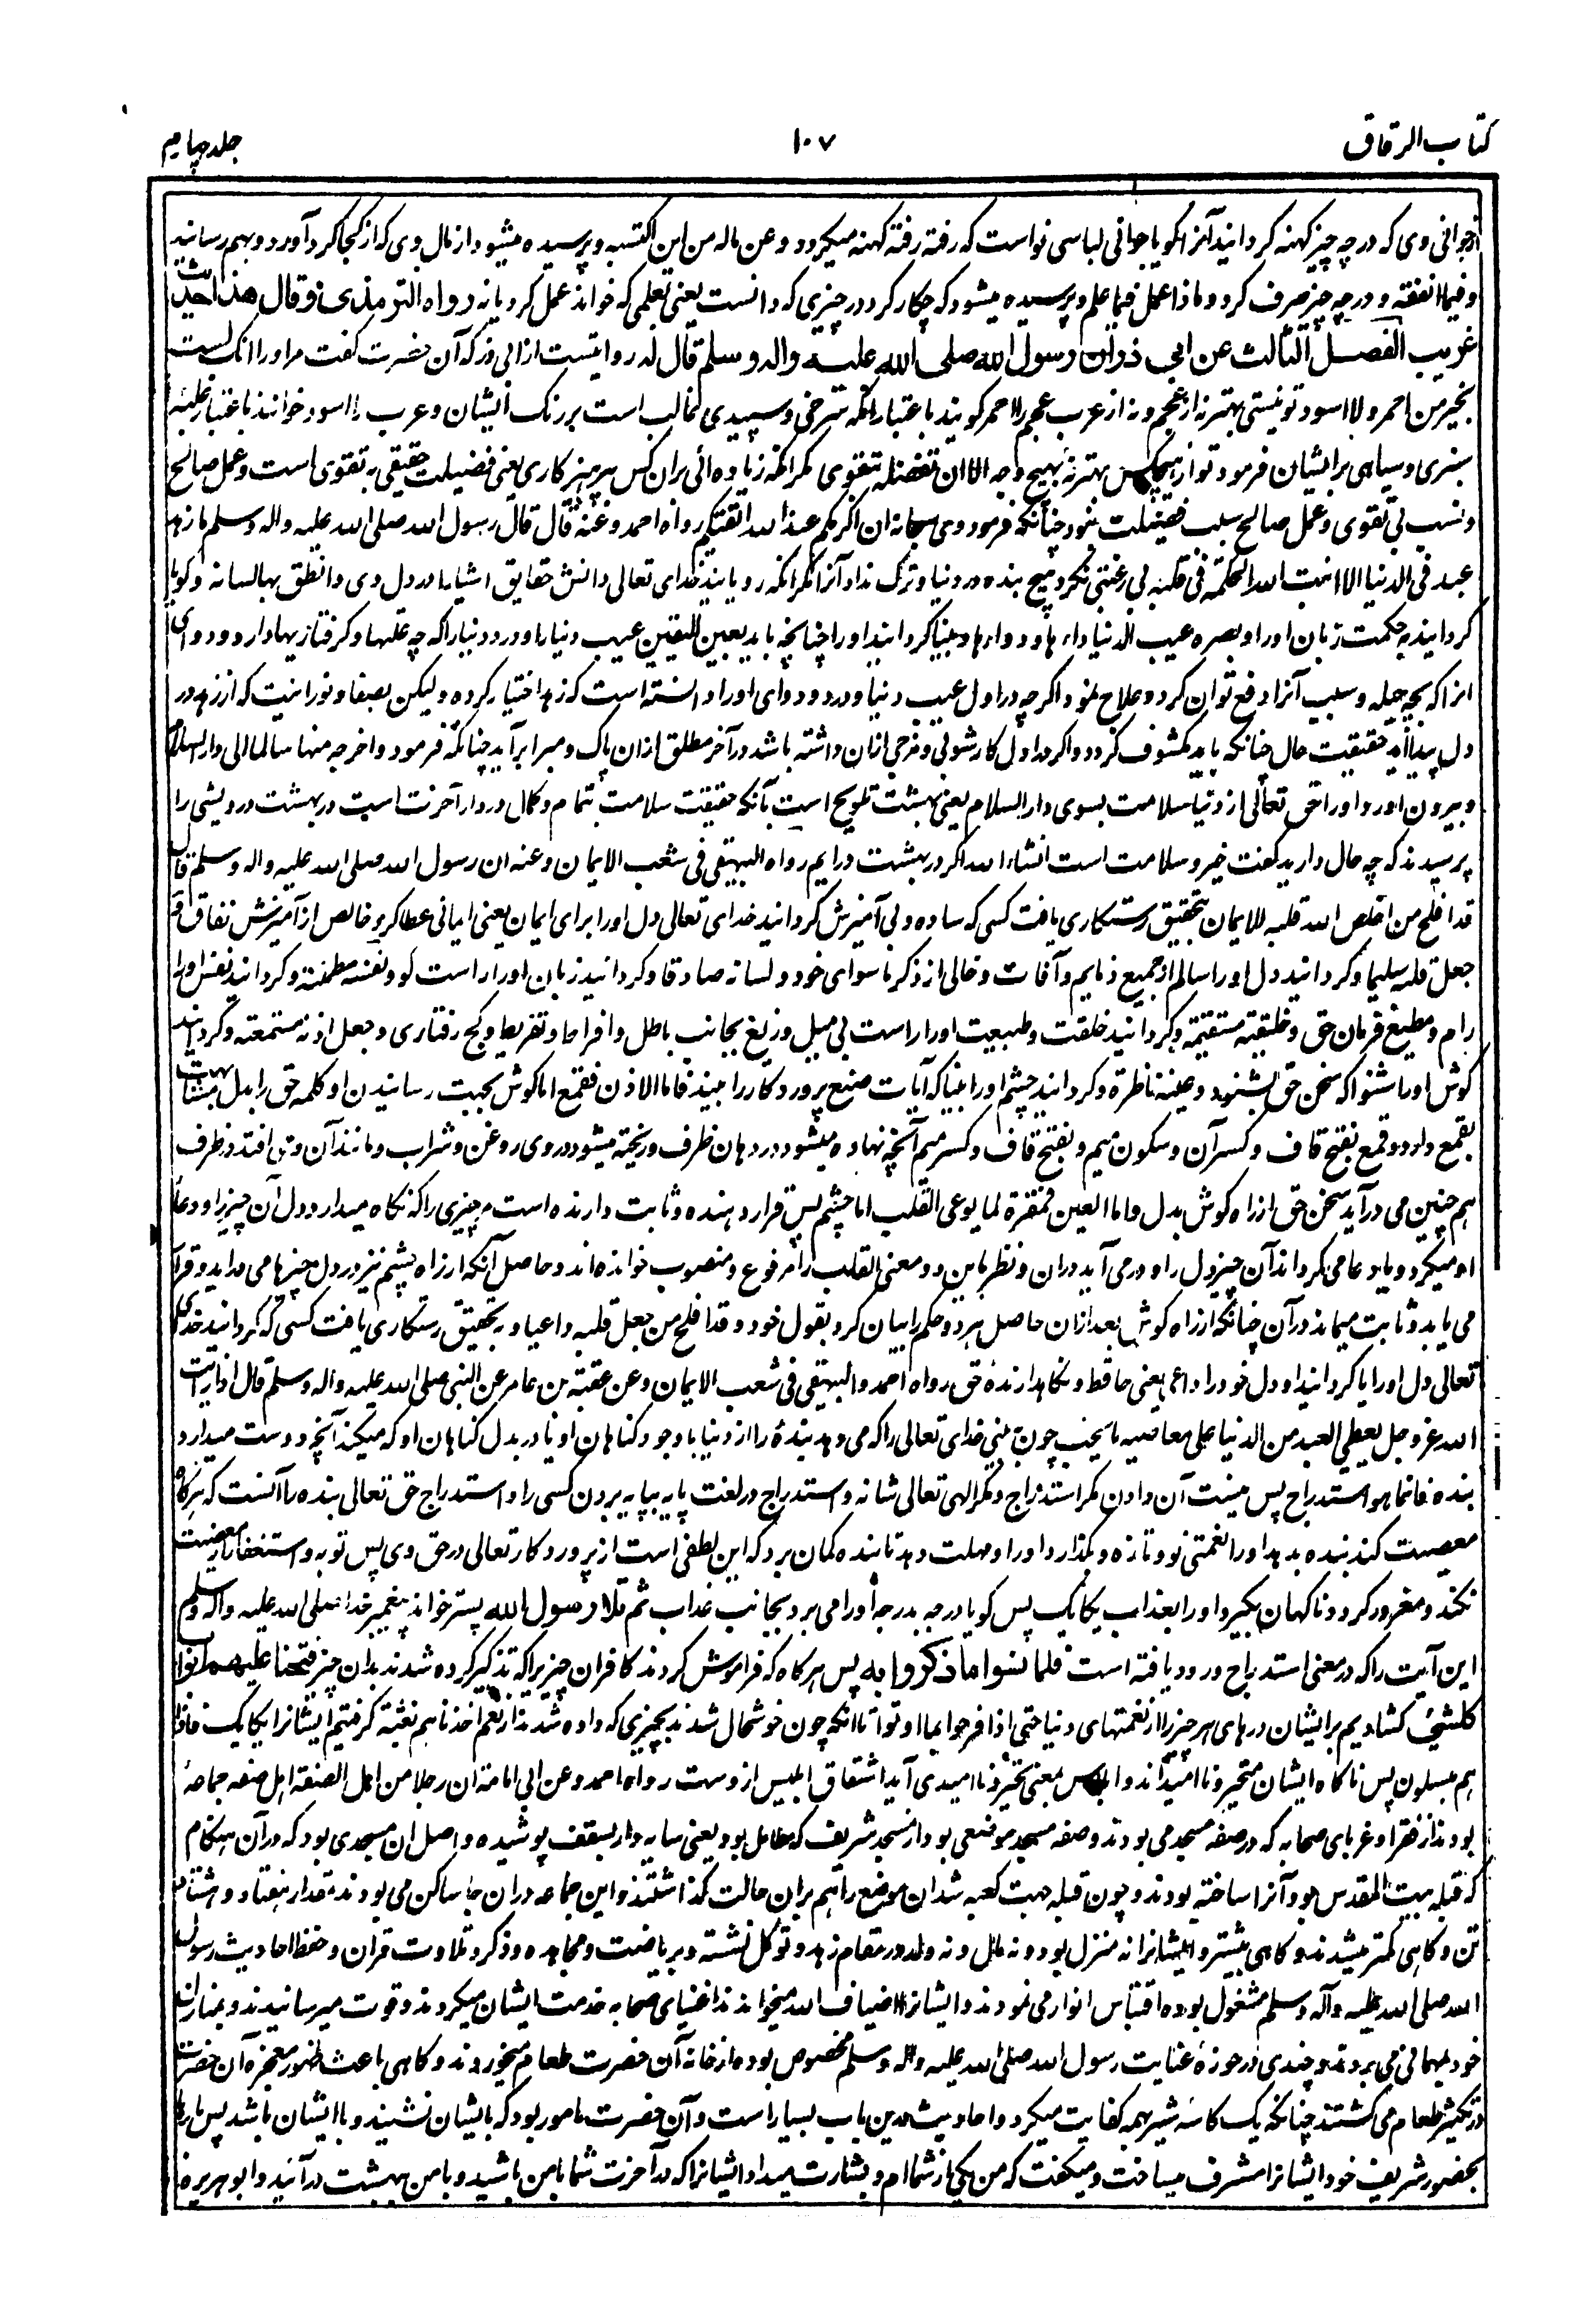 کتاب الرقاق
۱۰۷
جلد چهارم
از جوانی وی که در چه چیز کهنه گردانید آنرا گویا جوانی لباسی نو است که رفته رفته کهنه میگردد و عن ماله من این اکتسبه و پرسیده میشود از مال وی که از کجا گرد آورد و بهم رسانید
و فیما انفقه و در چه چیز صرف کرد و ماذا عمل فیما علم و پرسیده میشود که چکار کرد در چیزی که دانست یعنی تعلمی که خواند عمل کرد یا نه رواه الترمذی و قال هذا حدیث
غریب الفصل الثالث عن ابی ذر ان رسول الله صلی الله علیه واله وسلم قال له روایتست از ابی ذر که آن حضرت گفت مر او را انک لست
بخیر من احمر ولا اسود تو نیستی بهتر نه از عجم و نه از عرب عجم را احمر گویند باعتبار آنکه سرخی و سپیدی غالب است بر رنگ ایشان و عرب را اسود خوانند باعتبار غلبۀ
سبزی و سیاهی بر ایشان فرمود تو از هیچکس بهتر نۀ بهیچ وجه الا ان تفضله بتقوی مگر آنکه زیاده آئی بران کس بپرهیزگاری یعنی فضیلت حقیقی به تقوی است و عمل صالح
و نسب بی تقوی و عمل صالح سبب فضیلت نبود چنانکه فرمود وی سبحانه ان اکرمکم عند الله اتقیکم رواه احمد وعنه قال قال رسول الله صلی الله علیه واله وسلم ما زهد
عبد فی الدنیا الا انبت الله الحکمة فی قلبه بی رغبتی نکرد هیچ بنده در دنیا و ترک نداد آنرا مگر آنکه رویانید خدای تعالی دانش حقایق اشیا را در دل وی و انطق بها لسانه و گویا
گردانید به حکمت زبان او را و بصره عیب الدنیا داءها و دواءها و بینا گردانید او را چنانچه باید بعین الیقین عیب دنیا را و درد دنیا را که چه علتها و گرفتاریها دارد و دوای
انرا که بچه حیله و سبب آنرا دفع توان کرد و علاج نمود اگرچه در اول عیب دنیا و درد و دوای او را دانسته است که زهد اختیار کرده و لیکن بصفا و نورانیت که از زهد در
دل پیدا آید حقیقت حال چنانکه باید مکشوف گردد و اگر در اول کار شوبی و مزجی ازان داشته باشد در آخر مطلق ازان پاک و مبرا برآید چنانکه فرمود و اخرجه منها سالما الی دار السلام
و بیرون آورد او را حق تعالی از دنیا سلامت بسوی دار السلام یعنی بهشت تلویح است بآنکه حقیقت سلامت بتمام و کمال در دار آخرت است در بهشت درویشی را
پرسیدند که چه حال دارید گفت خیر و سلامت است انشاء الله اگر در بهشت درایم رواه البیهقی فی شعب الایمان وعنه ان رسول الله صلی الله علیه واله وسلم قال
قد افلح من اخلص الله قلبه للایمان بتحقیق رستگاری یافت کسی که ساده و بی آمیزش گردانید خدای تعالی دل او را برای ایمان یعنی ایمانی عطا کرد خالص از آمیزش نفاق و
جعل قلبه سلیما و گردانید دل او را سالم از جمیع ذمایم و آفات و خالی از ذکر ما سوای خود و لسانه صادقا و گردانید زبان او را راست گو و نفسه مطمئنة و گردانید نفس او را
رام و مطیع فرمان حق و خلیقته مستقیمة و گردانید خلقت و طبیعت او را راست بی میل و زیغ بجانب باطل و افراط و تفریط و کج رفتاری و جعل اذنه مستمعة و گردانید
گوش او را شنوا که سخن حق بشنود و عینه ناظرة و گردانید چشم او را بینا که آیات صنع پروردگار را بیند فاما الاذن فقمع اما گوش بجهت رسانیدن او کلمه حق را بدل مشابهت
بقمع دارد و قمع بفتح قاف و کسر آن و سکون میم و بفتح قاف و کسر میم آنچه نهاده میشود در دهان ظرف و ریخته میشود در وی روغن و شراب و مانند آن و می افتد در ظرف
هم چنین می درآید سخن حق از راه گوش بدل و اما العین فمقرة لما یوعی القلب اما چشم پس قرار دهنده و ثابت دارنده است مر چیزی را که نگاه میدارد دل آن چیز را و وعاء
او میگرد و یا وعا می گرداند آن چیز دل را و درمی آید دران و نظر باین دو معنی القلب را مرفوع و منصوب خوانده اند و حاصل آنکه از راه چشم نیز در دل چیزها می درآید و قرار
می یابد و ثابت میماند در آن چنانکه از راه گوش بعد ازان حاصل هر دو حکم را بیان کرد بقول خود و قد افلح من جعل قلبه واعیا و بتحقیق رستگاری یافت کسی که گردانید خدای
تعالی دل او را یا گردانید او دل خود را واعی یعنی حافظ و نگاهدارندۀ حق رواه احمد والبیهقی فی شعب الایمان وعن عقبة بن عامر عن النبی صلی الله علیه واله وسلم قال اذا رایت
الله عز وجل یعطی العبد من الدنیا علی معاصیه ما یحب چون ببینی خدای تعالی را که می دهد بندۀ را از دنیا با وجود گناهان او یا در بدل گناهان او که میکند آنچه دوست میدارد
بنده فانما هو استدراج پس نیست آن دادن مگر استدراج و مکر الهی تعالی شانه و استدراج در لغت پایه بپایه بردن کسی را و استدراج حق تعالی بنده را آنست که هرگاه
معصیت کند بنده بدهد او را نعمتی نو و تازه و بگذارد او را و مهلت دهد تا بنده گمان برد که این لطفی است از پروردگار تعالی در حق وی پس توبه و استغفار از معصیت
نکند و مغرور گردد و ناگهان بگیرد او را بعذاب یکایک پس گویا درجه بدرجه او را می برد بجانب عذاب ثم تلا رسول الله پستر خواند پیغمبر خدا صلی الله علیه واله وسلم
این آیت را که در معنی استدراج ورود یافته است فلما نسوا ما ذکروا به پس هرگاه که فراموش کردند کافران چیزیرا که تذکیر کرده شدند بدان چیز فتحنا علیهم ابواب
کلشیء کشادیم بر ایشان درهای هر چیز را از نعمتهای دنیا حتی اذا فرحوا بما اوتوا تا آنکه چون خوشحال شدند بچیزی که داده شدند از نعم اخذناهم بغتة گرفتیم ایشانرا یکایک فاذا
هم مبلسون پس ناگاه ایشان متحیر و ناامیدند و ابلاس بمعنی تحیر و ناامیدی آید اشتقاق ابلیس ازوست رواه احمد وعن ابی امامة ان رجلا من اهل الصفة اهل صفه جماعۀ
بودند از فقرا و غربای صحابه که در صفه مسجد می بودند و صفه مسجد موضعی بود از مسجد شریف که مظلل بود یعنی سایه دار بسقف پوشیده و اصل ان مسجدی بود که در آن هنگام
که قبله بیت المقدس بود آنرا ساخته بودند و چون قبله جهت کعبه شد ان موضع را هم بران حالت گذاشتند و این جماعه دران جا ساکن می بودند مقدار هفتاد و هشتاد
تن و گاهی کمتر میشدند و گاهی بیشتر و ایشانرا نه منزل بود و نه مال و نه ولد در مقام زهد و توکل نشسته و بریاضت و مجاهده و ذکر و تلاوت قران و حفظ احادیث رسول
الله صلی الله علیه وآله وسلم مشغول بوده اقتباس انوار می نمودند و ایشانرا اضیاف الله میخواندند اغنیای صحابه خدمت ایشان میکردند و قوت میرسانیدند و بمنازل
خود بمهمانی می بردند و چندی در حوزۀ عنایت رسول الله صلی الله علیه واله وسلم مخصوص بوده از خانه آن حضرت طعام میخوردند و گاهی باعث ظهور معجزه آن حضرت
در تکثیر طعام می گشتند چنانکه یک کاسۀ شیر همه کفایت میکرد و احادیث درین باب بسیار است و آن حضرت مامور بود که بایشان نشیند و با ایشان باشد پس بارها
بحضور شریف خود ایشانرا مشرف میساخت و میگفت که من یکی از شماام و بشارت میداد ایشانرا که در آخرت شما با من باشید و با من بهشت درآئید و ابو هریره